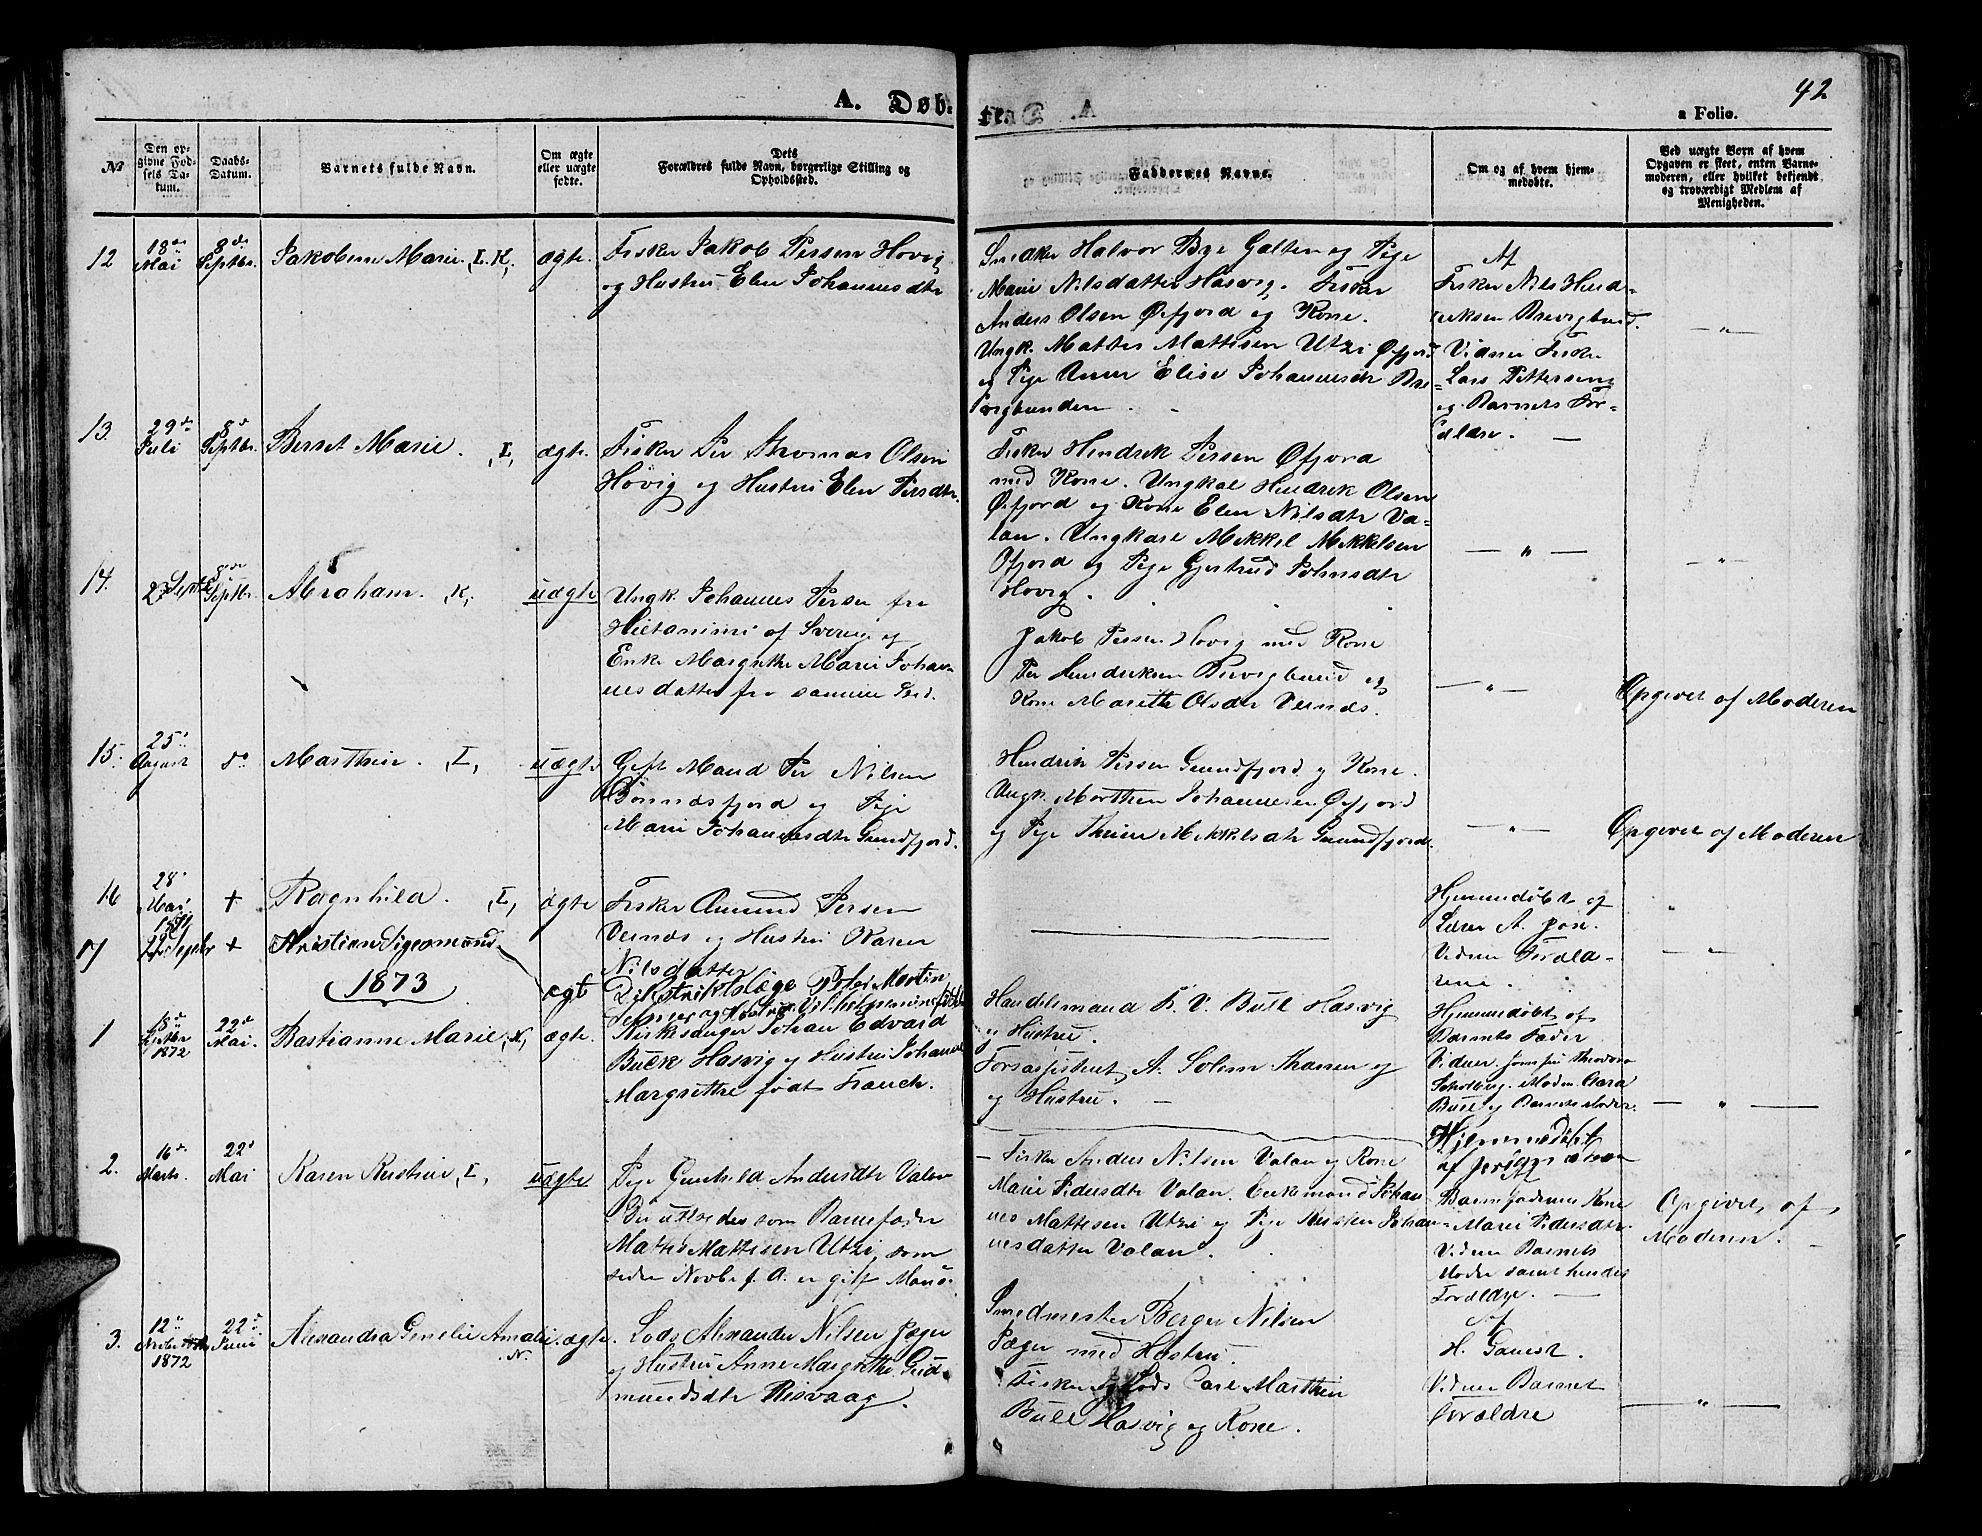 A. Døb-
te.
42
a Folio.
№
Den op-
givne Fød-
sels Da-
tum.
Daabs-
Datum.
Barnets fulde Navn.
Om ægte
eller uægte
fødte.
Dets
Forældres fulde Navn, borgerlige Stilling og
Opholdssted.
Faddernes Navne.
Om og af hvem hjem-
medøbte.
Ved uægte Børn af hvem
Opgaven er skeet, enten Barne-
moderen, eller hvilket bekjendt
og troværdigt Medlem af
Menigheden.
12
18de
Mai
8de
Septbr.
Jakobine Marie. L. K.
ægte.
Fisker Jakob Persen Hovig
og Hustru Elen Johannesdtr
Snedker Halvor Bye Galten og Pige
Marie Nilsdatter Hasvig. Fisker
Anders Olsen Øfjord og Kone.
Ungk. Mattis Mattisen Utzi Øfjord
og Pige Anne Elise Johannesdtr Bre
vigbunden.
Af
Fisker Nils Hend-
riksen Brevigbund.
Vidner Fisker
Lars Pettersen
og Barnets For-
ældre. —
— " —
13.
29de
Juli
8de
Septbr.
Berret Marie. L,
ægte.
Fisker Per Thomas Olsen
Hovig og Hustru Elen Persdtr.
Fisker Hendrik Persen Øfjord
med Kone. Ungkal Hendrik Olsen
Øfjord og Kone Elen Nilsdtr Va-
lan. Ungkarl Mikkel Mikkelsen
Øfjord og Pige Gjertrud Johnsdtr
Hovig.
— " —
— " —
14.
2. Septbr
8de
Septbr.
Abraham. K,
uægte
Ungk. Johannes Persen fra
Hietanimi af Sverige og
Enke Margrethe Marie Johan-
nesdatter fra samme Sted.
Jakob Persen Hovig med Kone
Per Hendriksen Brevigbund og
Kone Marethe Olsdtr Vernæs.
— " —
Opgivet af Moderen
15.
25de
August
do
Marthin. L,
uægte
Gift Mand Per Nilsen
Bønnæsfjord og Pige
Marie Johannesdtr Grundfjord.
Hendrik Persen Grundfjord og Kone.
Ungk. Marthin Johannesen Øfjord
og Pige Thrine Mikkelsdtr Grundfjord.
— " —
Opgivet af Moderen
16
28
Mai
+
Ragnhild. L,
ægte
Fisker Amund Persen
Vernæs og Hustru Karen
Nilsdatter
Hjemmedøbt af
Lærer A.
Vidner Foræld-
rene.
"
17
22 Septbr
+
Kristian Sigesmund
ægt
Distriktslæge Peter Martin
og Hustru Vilhelmine født
— " —
1873
1
18de
Septbr
1872
22de
Mai.
Bastianne Marie. N,
ægte.
Kirkesanger Johan Edvard
Buck Hasvig og Hustru Johanne
Margrethe født Franck.
Handelsmand F. V. Bull Hasvig
og Hustru.
Forsassistent A. Solem Hansen og
og Hustru. —
Hjemmedøbt af
Barnets Fader
Vidner Jomfru Theodora
Scholberg. Madm. Clara
Bull og Barnets Moder.
— " —
2.
16de
Marts.
22de
Mai
Karen Kristine, L,
uægte
Pige Gunhild Andersdtr Valan
Der udlægdes som Barnefader
Mattis Mattisen Utzi, som
siden Novbr f. A. er gift Mand.
Fisker Anders Nilsen Valan og Kone
Marie Pedersdtr Valan. Enkemand Johan-
nes Mattisen Utzi og Pige Kirsten Johan-
nesdatter Valan.
Hjemmedøbt
af
Kone
Marie Pedersdtr.
Vidner Barnets
Moder samt hendes
Forældre. —
Opgivet, af
Moderen. —
3.
12te
1872
22de
Juni
Alexandra Genelie Amalie.
N.
ægte.
Lods Alexander Nilsen Jæger
og Hustru Anne Margrethe Gud-
mundsdtr Risvaag.
Smedmester Berger Nilsen
Jæger med Hustru.
Fisker og Lods Carl Marthin
Bull Hasvig og Kone.
Af
H. Ganist.
Vidner Barnets
Forældre
— " —